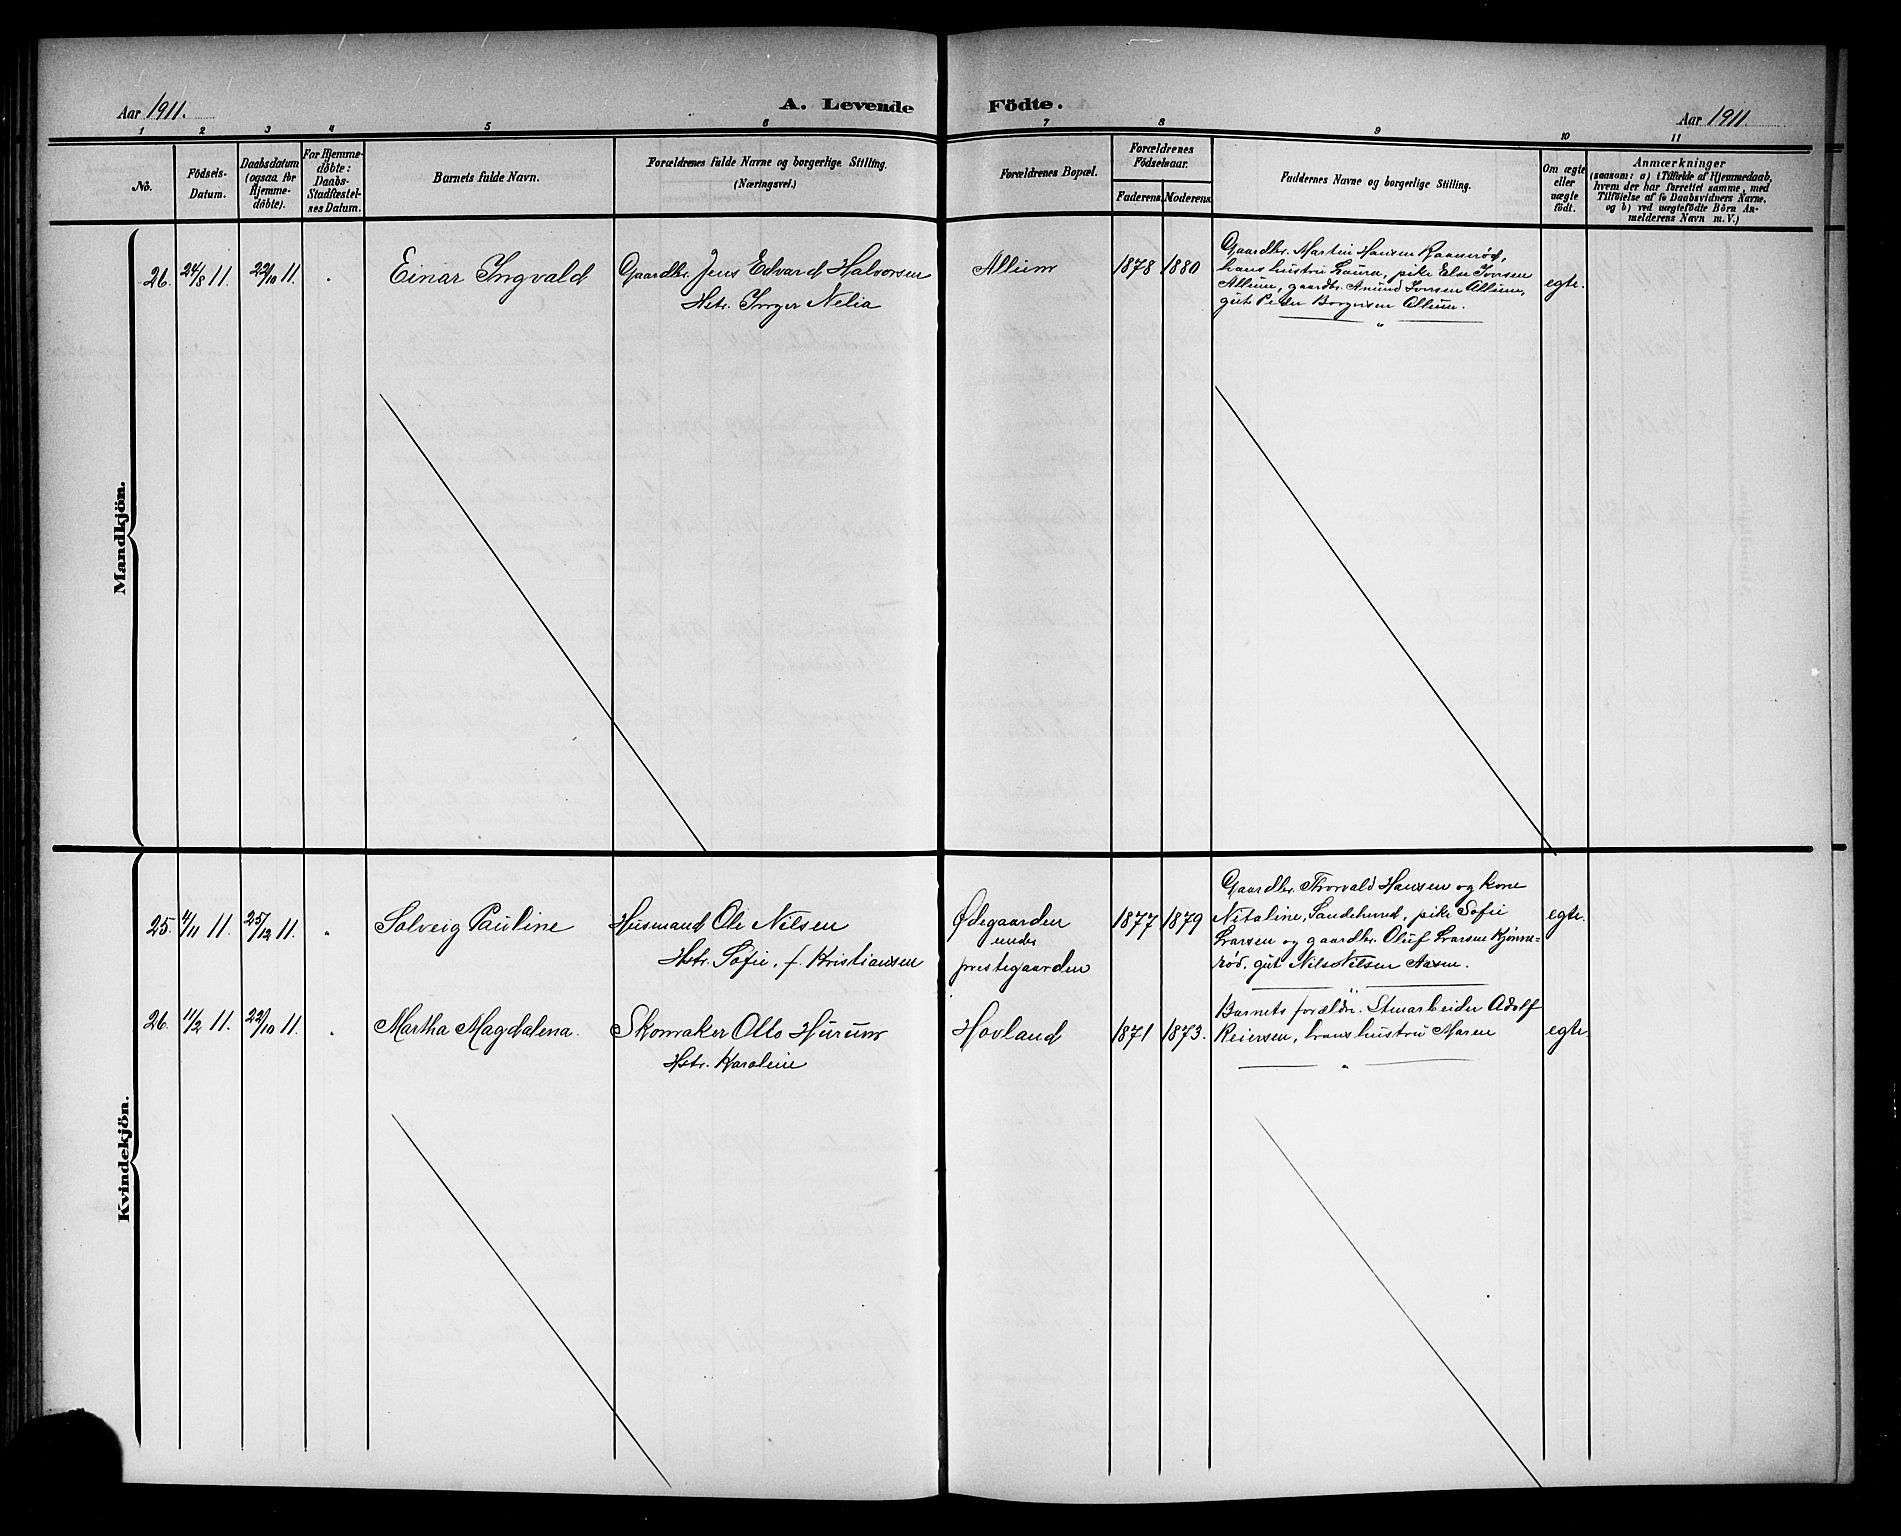 Aar 1911.
A. Levende Födte.
Aar 1911.
1 2 3 4 5 6 7 8 9 10 11
No.
Födsels-
Datum.
Daabsdatum
(ogsaa for
Hjemme-
döbte).
For Hjemme-
döbte:
Daabs-
Stadfæstel-
ses Datum.
Barnets fulde Navn.
Forældrenes fulde Navne og borgerlige Stilling.
(Næringsvei.)
Forældrenes Bopæl.
Forældrenes
Födselsaar.
Faderens. Moderens.
Faddernes Navne og borgerlige Stilling.
Om ægte
eller
uægte
födt.
Anmærkninger
(saasom: a) i Tilfælde af Hjemmedaab,
hvem der har forrettet samme, med
Tilföielse af to Daabsvidners Navne.
og b) ved uægtefödte Börn An-
melderens Navn m. V.)
Mandkjön.
26. 24/8 11. 22/10 11. " Einar Ingvald
Gaardbr. Jens Edvard Halvorsen
Hstr. Inger Nelia
Allum 1878 1880
Gaardbr. Martin Hansen Raanerød,
hans hustru Laura, pike Else Iversen
Allum, gaardbr. Anund Iversen Allum,
gut Peder Borgersen Allum.
"
egte.
Kvindekjön.
25. 4/11 11. 25/12 11. " Solveig Pauline
Husmand Ole Nilsen
Hstr. Sofie, f. Kristiansen
Ødegaarden
under
prestegaarden
1877 1879
Gaardbr. Thorvald Hansen og kone
Nitaline, Sandeherred, pike Sofie
Larsen og gaardbr. Oluf Larsen Kjønne-
rød, gut Nils Nilsen Aasen.
"
egte.
26. 11/2 11. 22/10 11. " Martha Magdalena.
Skomaker Otto Hurum
Hstr. Karoline
Hovland 1871 1873.
Barnets forældre. Stenarbeider Adolf
Reiersen, hans hustru Maren
"
egte.